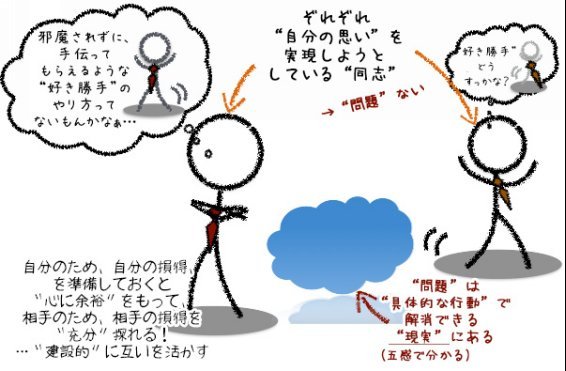 邪魔されずに、
手伝って
もらえるような
“好き勝手”の
やり方って
ないもんかなぁ…
ぞれぞれ
“自分の思い”を
実現しようと
している“同志”
→ “問題” ない
“好き勝手”
どう
すっかな?
自分のため、自分の損得、
を準備しておくと
“心に余裕”をもって、
相手のため、相手の損得を
“充分”探れる!
…“建設的”に互いを活かす
“問題”は
“具体的な行動”で
解消できる
“現実”にある
(五感で分かる)